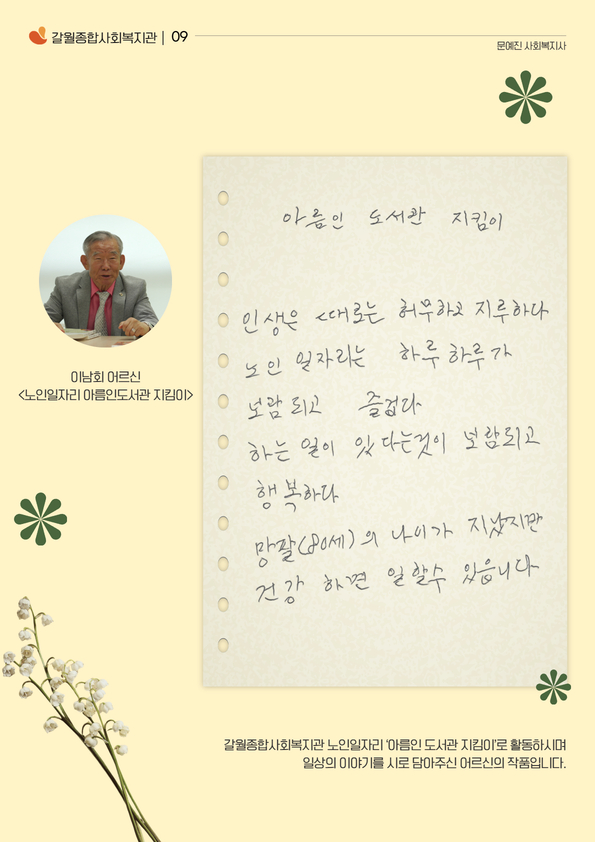 갈월종합사회복지관 | 09
문예진 사회복지사
아름인 도서관 지킴이
인생은 때로는 허무하고 지루하다
노인 일자리는 하루하루가
보람되고 즐겁다
하는 일이 있다는것이 보람되고
행복하다
망팔(80세)의 나이가 지났지만
건강 하면 일할수 있읍니다
이남회 어르신
<노인일자리 아름인도서관 지킴이>
갈월종합사회복지관 노인일자리 '아름인 도서관 지킴이'로 활동하시며
일상의 이야기를 시로 담아주신 어르신의 작품입니다.